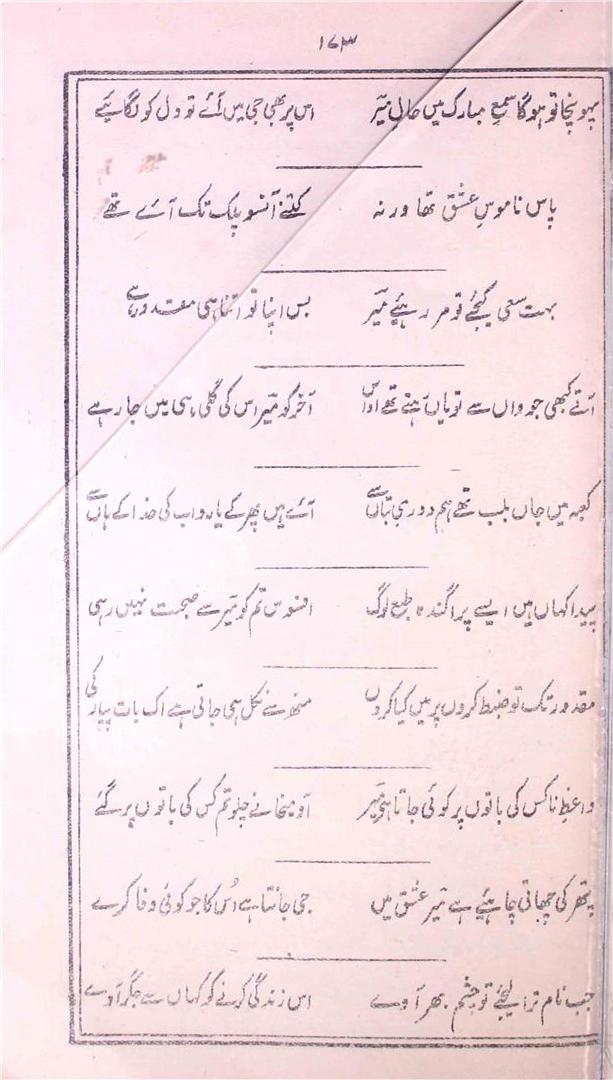 ۱۶۳
پہونچا تو ہوگا سمعِ مبارک میں حالِ میرؔ اس پر بھی جی میں آئے تو دل کو لگائیے
پاس ناموسِ عشق تھا ورنہ کتنے آنسو پلک تک آئے تھے
بہت سعی کیجئے تو مر رہیئے میرؔ بس اپنا تو اتنا ہی مقدور ہے
آتے کبھی جو واں سے تو یاں رہتے تھے اداس آخر کو میرؔ اس کی گلی ہی میں جا رہے
کعبہ میں جاں بلب تھے ہم دوریِ بتاں سے آئے ہیں پھر کے یارو اب کی خدا کے ہاں سے
پیدا کہاں ہیں ایسے پراگندہ طبع لوگ افسوس تم کو میرؔ سے صحبت نہیں رہی
مقدور تک تو ضبط کروں پر میں کیا کروں منھ سے نکل ہی جاتی ہے اک بات پیار کی
واعظِ ناکس کی باتوں پر کوئی جاتا ہی میرؔ آو میخانے چلو تم کس کی باتوں پر گئے
پتھر کی چھاتی چاہیئے ہے میرؔ عشق میں جی جانتا ہے اُس کا جو کوئی وفا کرے
جب نام ترا لیجئے تو چشم بھر آوے اس زندگی کرنے کو کہاں سے جگر آوے